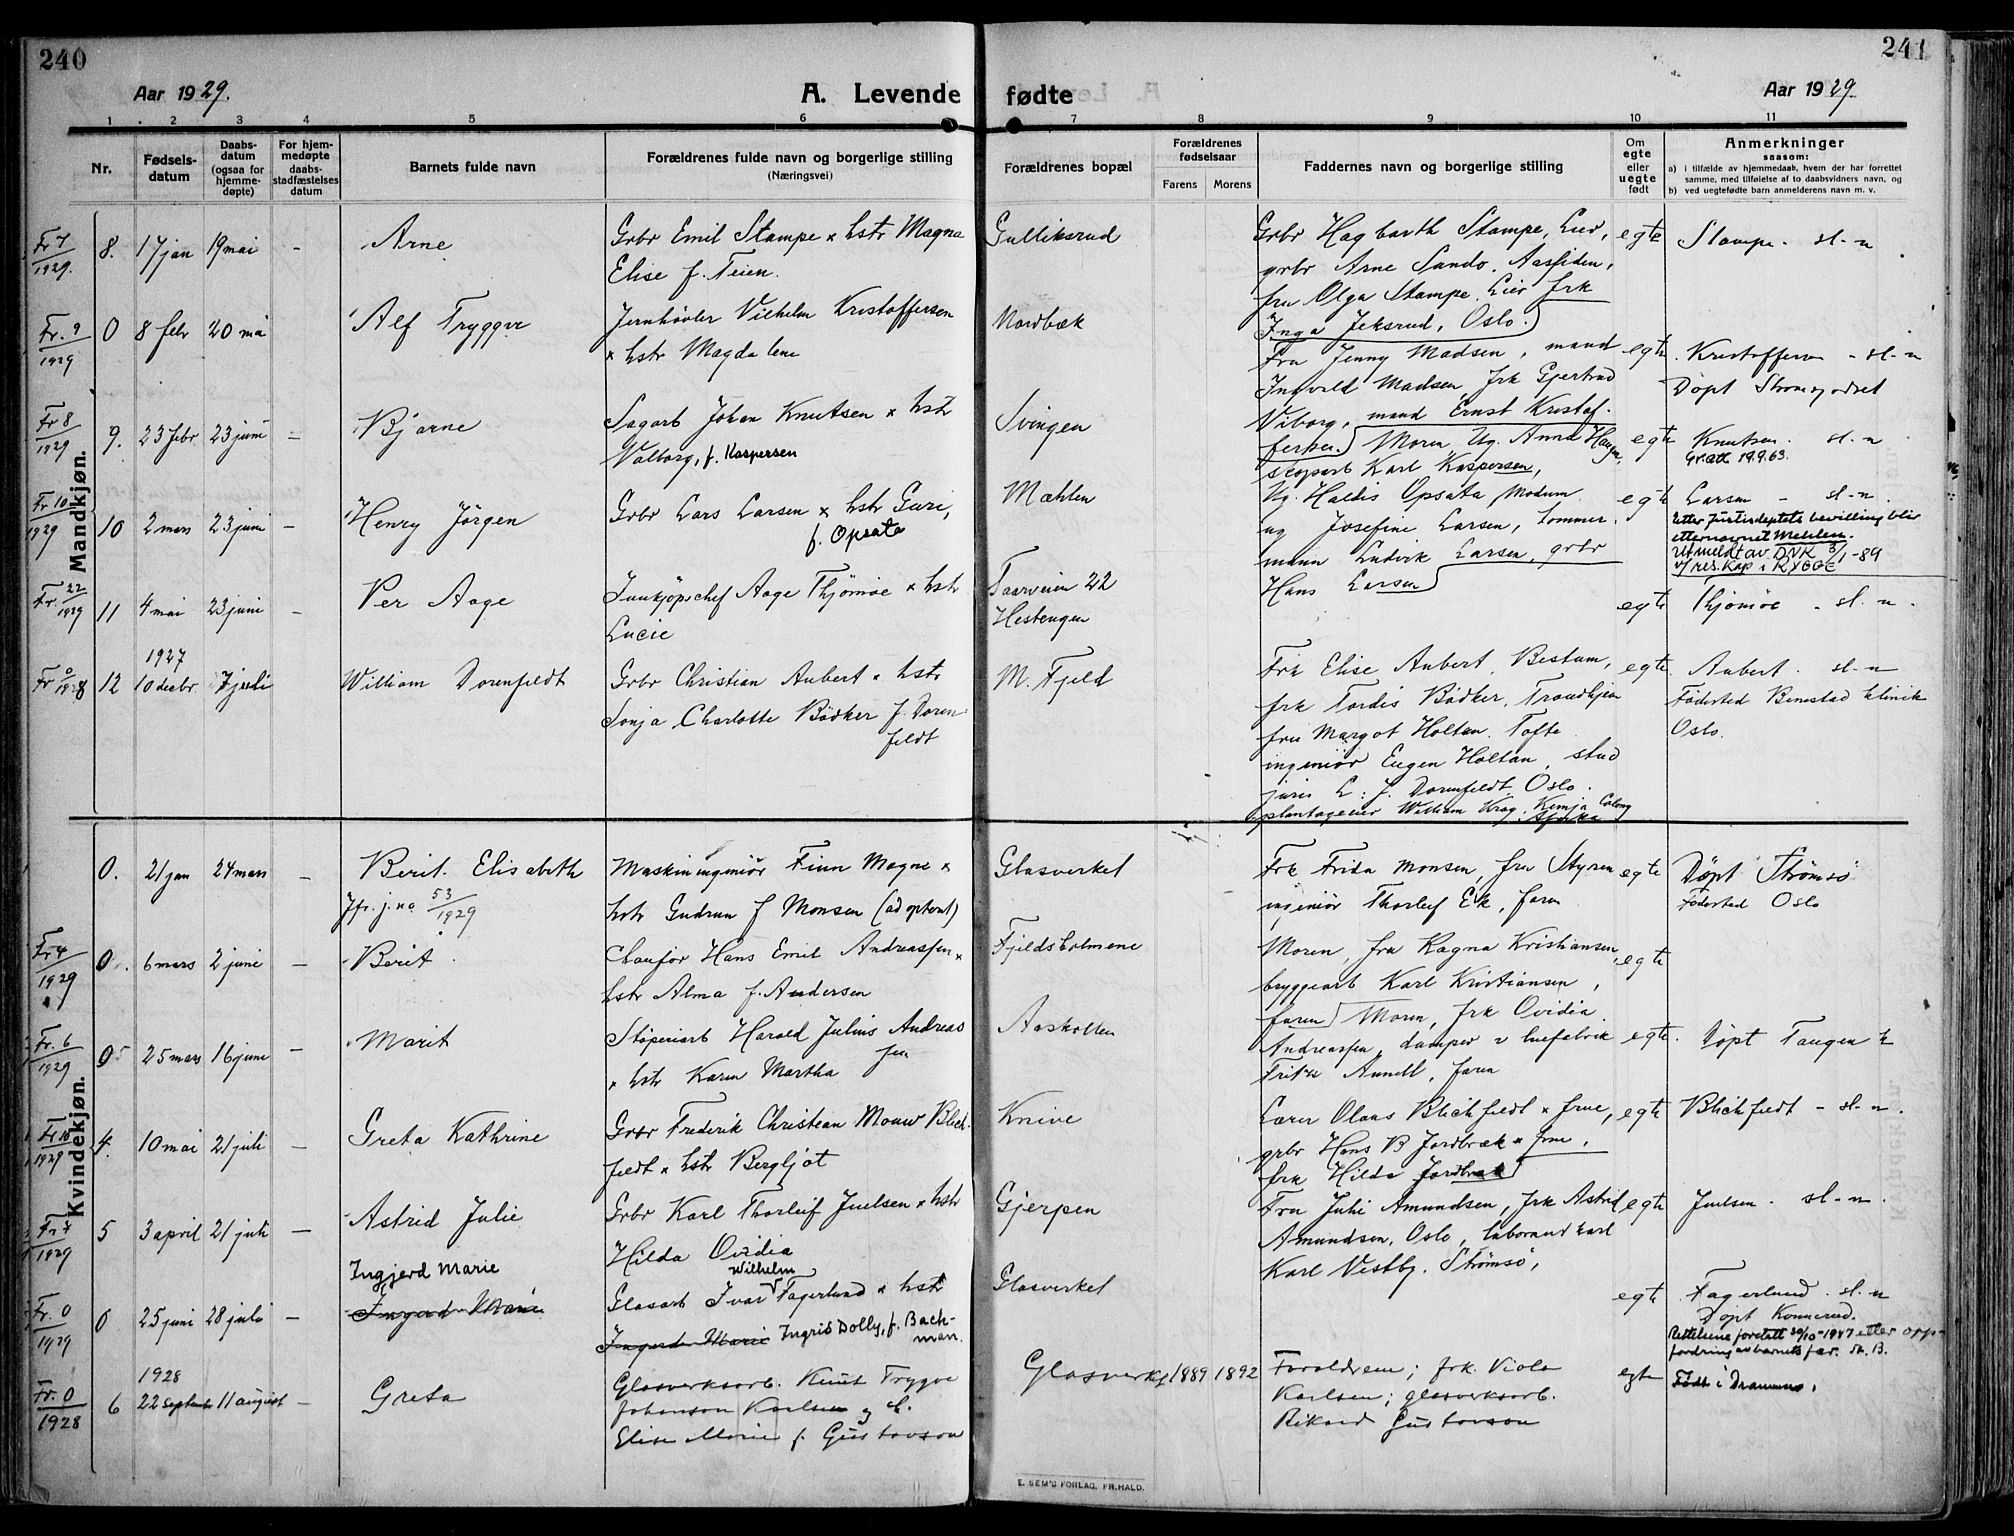 240
241
Aar 1929.
A. Levende fødte
Aar 1929
1 2 3 4 5 6 7 8 9 10 11
Nr.
Fødsels-
datum
Daabs-
datum
(ogsaa for
hjemme-
døpte)
For hjem-
medøpte
daabs-
stadfæstelses
datum
Barnets fulde navn
Forældrenes fulde navn og borgerlige stilling
(Næringsvei)
Forældrenes bopæl
Forældrenes
fødselsaar
Farens Morens
Faddernes navn og borgerlige stilling
Om
egte
eller
uegte
født
Anmerkninger
saasom:
a) i tilfælde av hjemmedaab, hvem der har forrettet
samme, med tilføielse af to daabsvidners navn, og
b) ved uegtefødte barn anmelderens navn m. v.
Mandkjøn.
Fr 7
1929.
8. 17 jan 19 mai - Arne
Grbr Emil Stampe x hstr Magna
Elise f. Teien.
Gulliksrud
Grbr Hagbarth Stampe, Lier,
grbr Arne Sando, Aassiden,
fru Olga Stampe, Lier frk
Inga Jeksrud, Oslo.
egte
Stampe - sl-n
Fr. 9
1929
0 8 febr 20 mai Alf Tryggve
Jernhøvler Vilhelm Kristoffersen
x hstr Magdalene
Nordbæk
Fru Jenny Madsen, mand
Ingvald Madsen frk Gjertrud
Viborg, mand Ernst Kristof-
fersen.
egte
Kristoffersen - sl-n
Døpt Strømsgodset
Fr 8
1929
9. 23 febr 23 juni - Bjarne
Sagarb Johan Knutsen x hstr
Valborg, f. Kaspersen
Svingen
Moren, Ug. Anna Haugen,
skoparb Karl Kaspersen,
egte
Knutsen. sl-n
Gr.att. 19.9.63.
Fr 10
1929
10 2 mars 23 juni - Henry Jørgen
Grbr Lars Larsen x hstr Guri,
f. Opsata
Mæhlen
Ug. Haldis Opsata Modum
ug Josefine Larsen, tømmer-
mann Ludvik Larsen, grbr
Hans Larsen
egte
Larsen - sl-n
Etter Justisdeptets bevilling blir
etternavnet Mehlen.
Utmeldt av DNK 3/1-89
v/res.kap i RYGGE
Fr. 22
1929
11 4 mai 23 juni - Per Aage
Innkjøpschef Aage Thjømøe x hstr
Lucie
Taarveien 22
Hestengen
egte
Thjømøe - sl-n.
Fr 0
1928
12 1927
10 decbr 7 juli William Dorenfeldt
Grbr Christian Aubert x hstr
Sonja Charlotte Bødker f. Doren-
feldt
M. Fjeld
Frk Elise Aubert, Bestum,
frk Tordis Bødker, Trondhjem
fru Margot Holtan. Tofte
ingeniør Eugen Holtan, stud
juris L. J. Dorenfeldt Oslo.
plantageeier William Krag. Kenja Colony
Afrika
egte
Aubert. sl-n
Fødested Benestad klinik
Oslo.
Kvindekjøn.
0. 21 jan 24 mars - Berit Elisabeth
Jfr. j.no 53/1929
Maskiningeniør Finn Magne x
hstr Gudrun f Monsen (adoptert)
Glasverket
Frk Frida Monsen, fru Styren
ingeniør Thorleif Ek, faren
egte
Døpt Strømsø
Fødested Oslo
Fr 4
1929
0. 6 mars 2 juni - Berit
Chaufør Hans Emil Andreassen x
hstr Alma f. Andersen
Fjeldsholmene
Moren, fru Ragna Kristiansen,
bryggearb Karl Kristiansen,
faren
egte
Fr. 6
1929
0 25 mars 16 juni - Marit
Støperiarb Harald Julius Andreas-
sen
x hstr Karen Martha
Aaskollen
Moren, frk Ovidia
Andreassen, damper v huefabrik
Fritz Aunell, faren
egte.
Døpt Tangen k
Fr 18
1929
4. 10 mai 21 juli - Greta Kathrine
Grbr Frederik Christian Mouw Blich-
feldt x hstr Bergljot
Knive
Lærer Olaus Blichfeldt x frue,
grbr Hans B Jordbræk x frue,
frk Hilda Jordbræk
egte
Blichfeldt - sl-n.
Fr 7
1929
5 3 april 21 juli - Astrid Julie
Grbr Karl Thorleif Juelsen x hstr
Hilda Ovidia
Gjerpen
Fru Juli Amundsen, frk Astrid
Amundsen, Oslo, laborant Karl
Karl Vestby. Strømsø,
egte
Juelsen. sl-n.
Fr. 0
1929
0 25 juni 28 juli - Ingjerd Marie
Ingerd Marie
Wilhelm
Glasarb Ivar Fagerlund x hstr
Ingerd Marie Ingrid Dolly, f. Bach-
man.
Glasverket
egte
Fagerlund. sl-n
Døpt Konnerud.
Rettelsene foretatt 30/10-1947 etter opp-
fordring av barnets far. M. B.
Fr. 0
1928
6 1928
22 september 11 august - Greta
Glasverksarb. Knut Trygve
Johanson Karlsen og h.
Elise Marie f. Gustavson
Glasverket 1889 1892
Foreldrene; frk. Viola
Karlsen; glasverksarb.
Rikard Gustavson
egte
Født i Drammen.
E. SEM'S FORLAG, FR.HALD.